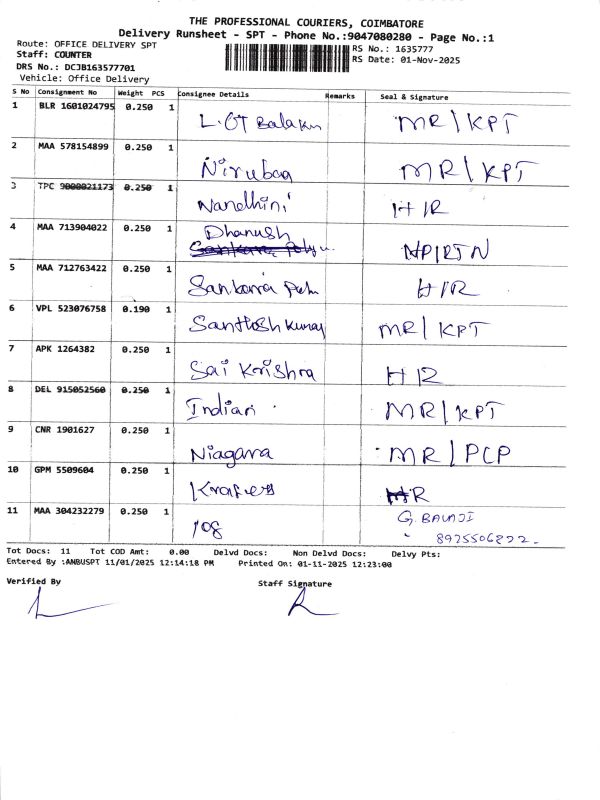 THE PROFESSIONAL COURIERS, COIMBATORE
Delivery Runsheet - SPT - Phone No.:9047080280 - Page No.:1
Route: OFFICE DELIVERY SPT
Staff: COUNTER
DRS No.: DCJB163577701
Vehicle: Office Delivery
RS No.: 1635777
RS Date: 01-Nov-2025
S No Consignment No Weight PCS Consignee Details Remarks Seal & Signature
1 BLR 1601024795 0.250 1 L.OT Balaku MR/KPT
2 MAA 578154899 0.250 1 Nirubaa MR/KPT
3 TPC 9000021173 0.250 1 Nandhini H/R
4 MAA 713904022 0.250 1 Dhanush NP/RTN
5 MAA 712763422 0.250 1 Sankara H/R
6 VPL 523076758 0.190 1 Santhosh Kumar MR/KPT
7 APK 1264382 0.250 1 Sai Krishna HR
8 DEL 915052560 0.250 1 Indian MR/KPT
9 CNR 1901627 0.250 1 Niagara MR/PCP
10 GPM 5509604 0.250 1 R
11 MAA 304232279 0.250 1 108 G. BALAJI
8925506822
Tot Docs: 11 Tot COD Amt: 0.00 Delvd Docs: Non Delvd Docs: Delvy Pts:
Entered By :ANBUSPT 11/01/2025 12:14:18 PM Printed On: 01-11-2025 12:23:00
Verified By Staff Signature